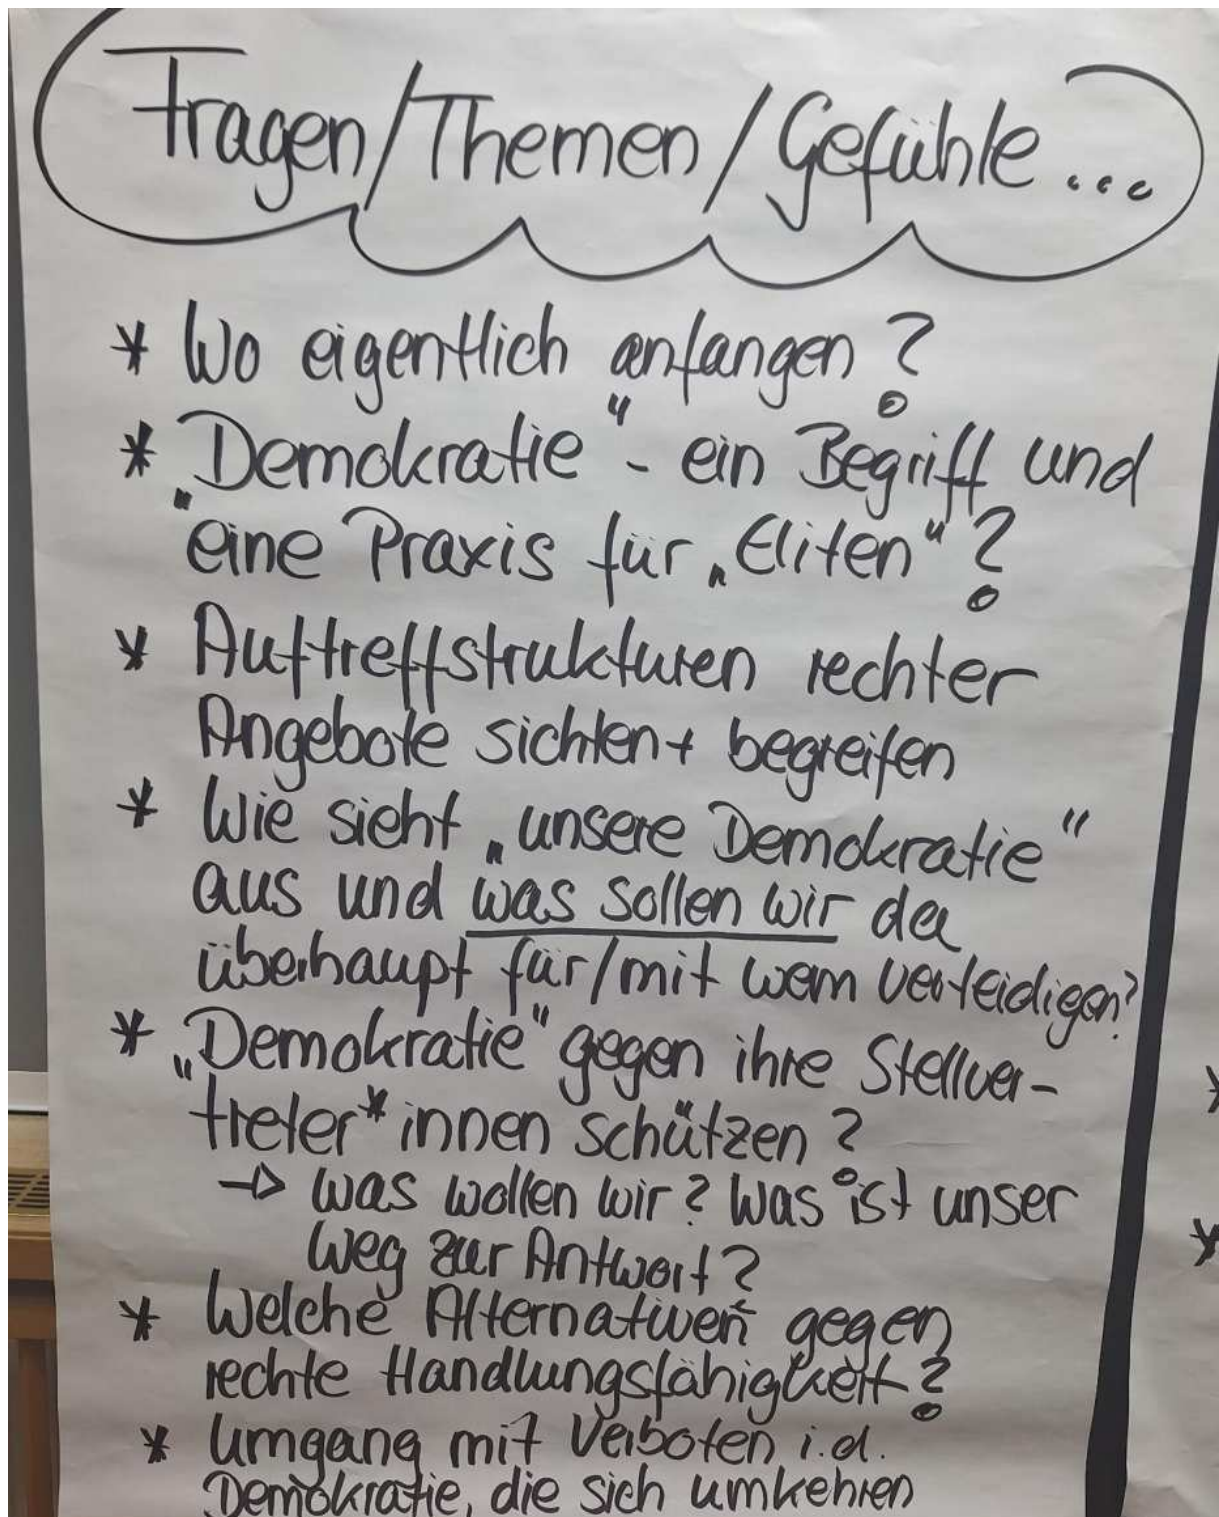 Fragen/Themen/Gefühle...
* Wo eigentlich anfangen?
* „Demokratie" - ein Begriff und
eine Praxis für „Eliten"?
* Auftreffstrukturen rechter
Angebote sichten + begreifen
* Wie sieht „unsere Demokratie"
aus und was sollen wir da
überhaupt für/mit wem verteidigen?
* „Demokratie" gegen ihre Stellver-
treter*innen schützen?
→ was wollen wir? Was ist unser
Weg zur Antwort?
* Welche Alternativen gegen
rechte Handlungsfähigkeit?
* Umgang mit Verboten i.d.
Demokratie, die sich umkehren